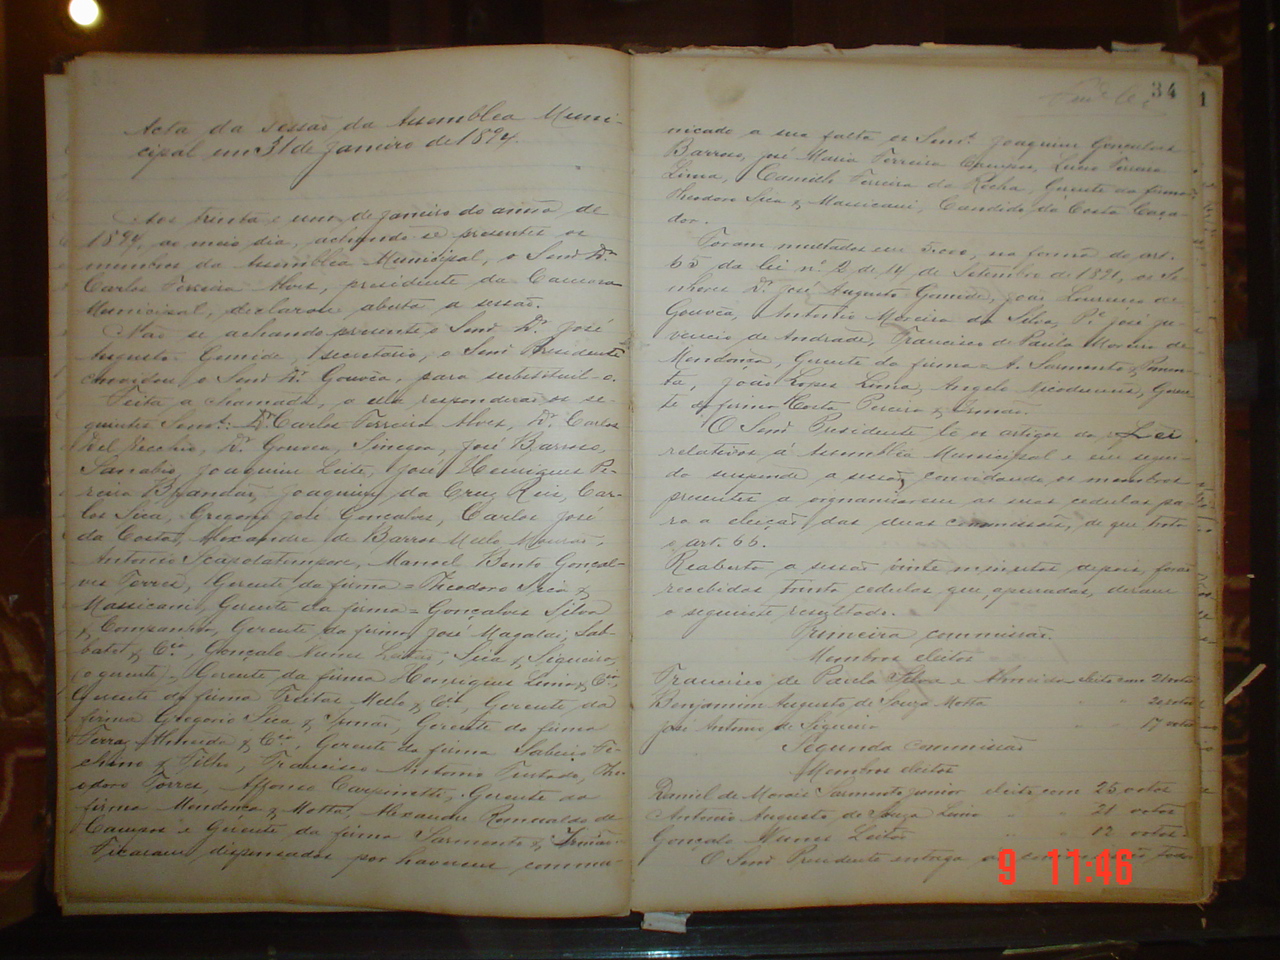 Acta da sessão da Assemblea Muni-
cipal em 31 de Janeiro de 1894.
Aos trinta e um de janeiro do anno de
1894, ao meio dia, achando-se presentes os
membros da Assemblea Municipal, o Senr. Dr.
Carlos Ferreira Alves, presidente da Camara
Municipal, declarou aberta a sessão.
Não se achando presente o Senr. Dr. José
Augusto Gomide, secretario, o Senr. Presidente
convidou o Senr. Dr. Gouvêa, para substituil-o.
Feita a chamada, a ella responderão os se-
guintes Senrs.: Dr. Carlos Ferreira Alves, Dr. Carlos
Del Vecchio, Dr. Gouvêa, José Barroso,
Joaquim Leite, José Henriques Pe-
reira Brandão, Joaquim da Cruz Reis, Car-
los Sica, Gregorio José Gonçalves, Carlos José
da Costa, Alexandre de Barros Mello Mourão,
Antonio Manoel Bento Gonçal-
ves Torres, Gerente da firma = Theodoro Sica &
Massicani, Gerente da firma = Gonçalves Silva
& Companhia, Gerente da firma José Magaldi, Sab-
batet & Cia, Gonçalo Nunes Leitão, Sica & Siqueira,
(o gerente) Gerente da firma Henrique Lima & Cia,
Gerente da firma Freitas Mello & Cia, Gerente da
firma Gregorio Sica & Irmão, Gerente da firma
Ferraz Almeida & Cia, Gerente da firma
& Filho, Francisco Antonio Furtado, The-
odoro Torres, Affonso Gerente da
firma Mendonça & Motta, Alexandre Romualdo de
Campos e Gerente da firma Sarmento & Irmão.
Ficaram dispensados por haverem commu-
34
nicado a sua falta os Senrs. Joaquim Gonçalves
Barroso, José Maria Ferreira Campos, Lucio Ferreira
Lima, Camillo Ferreira da Rocha, Gerente da firma
Theodoro Sica & Massicani, Candido da Costa Caça-
dor.
Foram multados em na forma do art.
65 da lei nº 2 de 14 de Setembro de 1891, os Se-
nhores Dr. José Augusto Gomide, João Lourenço de
Gouvêa, Antonio Moreira da Silva, Pe. José Ju-
vencio de Andrade, Francisco de Paula Moreira de
Mendonça, Gerente da firma = A. Sarmento & Pimen-
ta, João Lopes Lima, Angelo Geren-
te da firma Costa Pereira & Irmão.
O Senr. Presidente lê os artigos da Lei
relativos á Assemblea Municipal e em segui-
da suspende a sessão, convidando os membros
presentes a organisarem as suas cedulas pa-
ra a eleição das duas commissões, de que trata
o art. 66.
Reaberta a sessão vinte minutos depois, foram
recebidas trinta cedulas que, apuradas, deram
o seguinte resultado.
Primeira commissão.
Membros eleitos
Francisco de Paula Silva e Almeida eleito com 21 votos
Benjamim Augusto de Souza Motta " " 20 votos
José Antonio de Siqueira " 17 votos
Segunda commissão
Membros eleitos
Daniel de Morais Sarmento Junior eleito com 25 votos
Antonio Augusto de Souza Lima " " 21 votos
Gonçalo Nunes Leitão " " 12 votos
O Senr. Presidente entrega
9 11:46